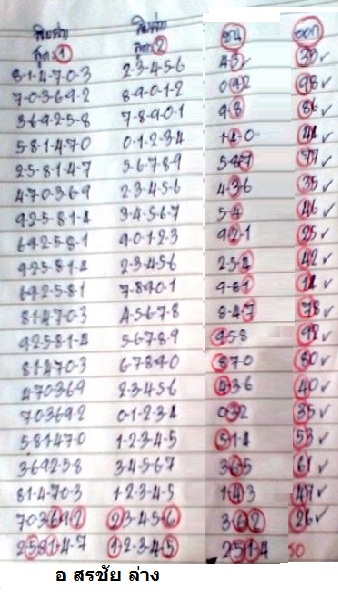 สูตร 1 สูตร 2 ออก
8-1-4-7-0-3 2-3-4-5-6
7-0-3-6-9-2 8-9-0-1-2 98 ✓
3-6-9-2-5-8 7-8-9-0-1 9-8 86 ✓
5-8-1-4-7-0 0-1-2-3-4
2-5-8-1-4-7 5-6-7-8-9
4-7-0-3-6-9 2-3-4-5-6 4-3-6 35 ✓
9-2-5-8-1-4 3-4-5-6-7 5-4 46 ✓
6-9-2-5-8-1 9-0-1-2-3 9-2-1 25 ✓
9-2-5-8-1-4 2-3-4-5-6 2-5-4 42 ✓
6-9-2-5-8-1 7-8-9-0-1 9-8-1
8-1-4-7-0-3 4-5-6-7-8 8-4-7 78 ✓
9-2-5-8-1-4 5-6-7-8-9 9-5-8 92 ✓
8-1-4-7-0-3 6-7-8-9-0 8-7-0 80 ✓
4-7-0-3-6-9 2-3-4-5-6 4-3-6 40 ✓
7-0-3-6-9-2 0-1-2-3-4 0-3-2 35 ✓
5-8-1-4-7-0 1-2-3-4-5 5-1-4 53 ✓
3-6-9-2-5-8 3-4-5-6-7 3-6-5 61 ✓
8-1-4-7-0-3 1-2-3-4-5 1-4-3 47 ✓
7-0-3-6-9-2 2-3-4-5-6 3-6-2 26 ✓
2-5-8-1-4-7 1-2-3-4-5 2-5-1-4 50
อ สรชัย ล่าง